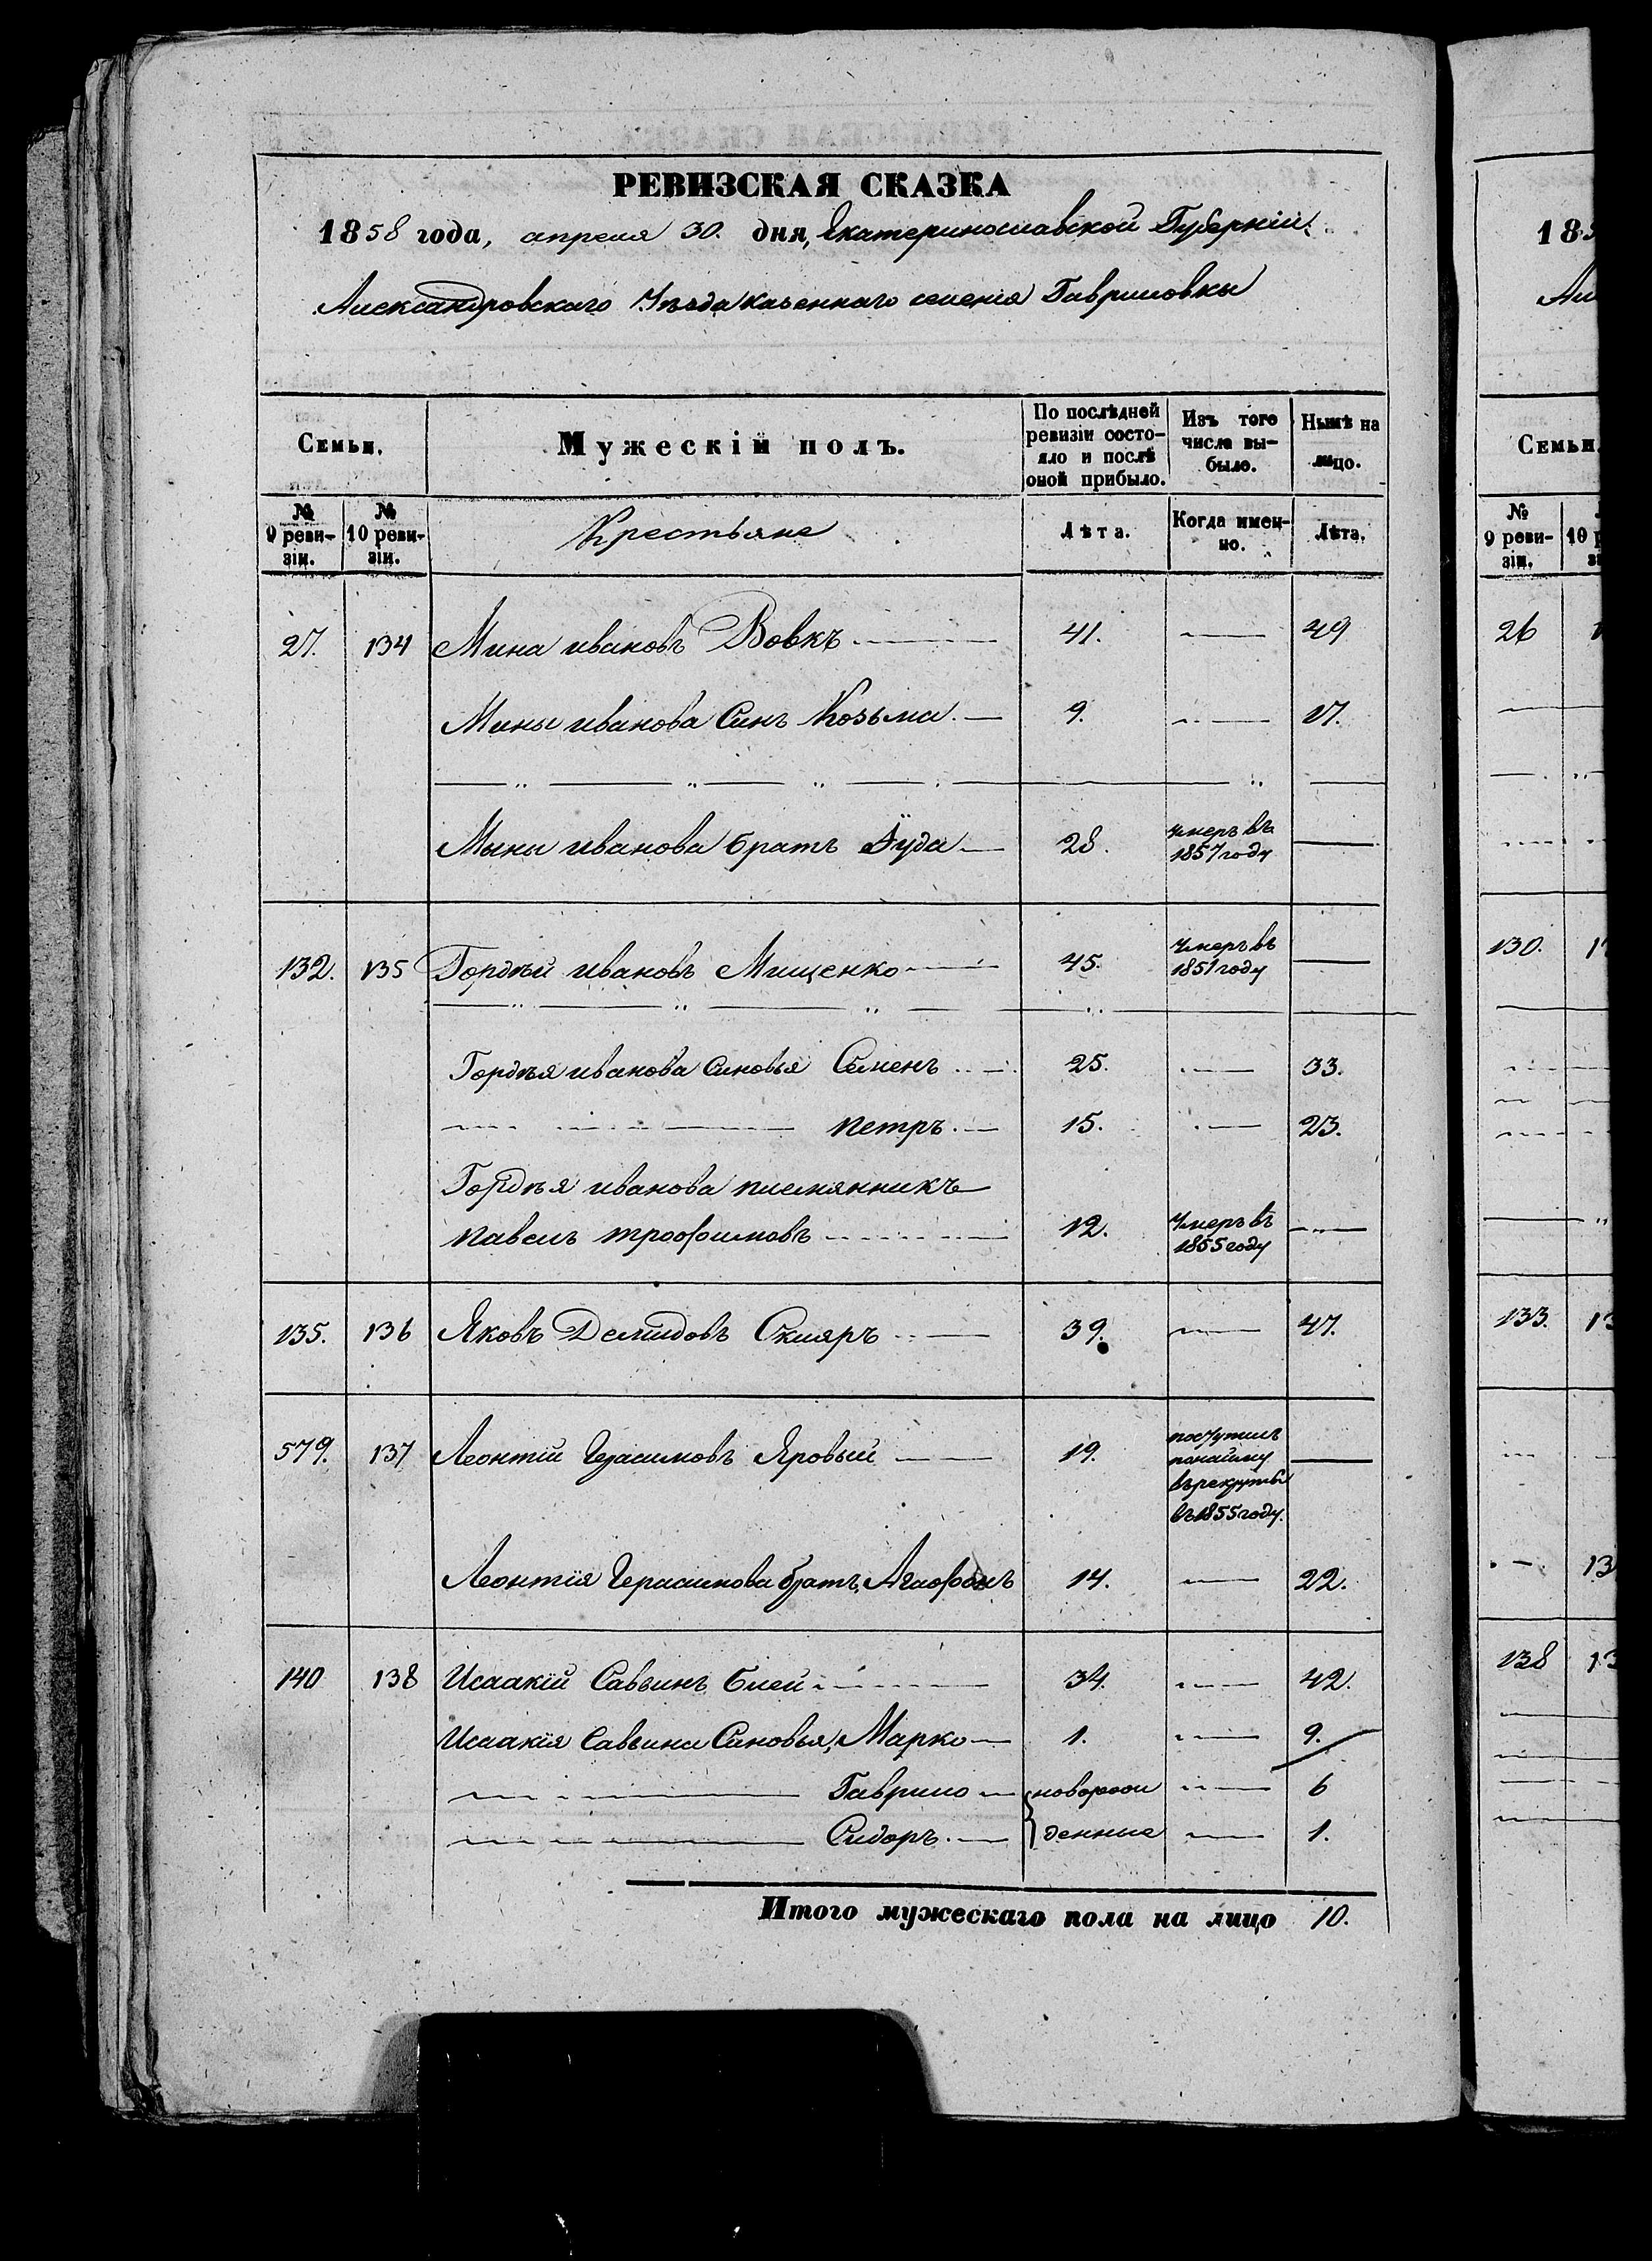 РЕВИЗСКАЯ СКАЗКА
1858 года, апреля 30. дня, Екатеринославской Губерніи
Александровскаго Уѣзда казеннаго селенія Гавриловки
Семьи.
Мужескій полъ.
По послѣдней ревизіи состояло и послѣ оной прибыло.
Изъ того числа выбыло.
Нынѣ на лицо.
№ 9 ревизіи.
№ 10 ревизіи.
Крестьяне
Лѣта.
Когда именно.
Лѣта.
27. 134 Мина ивановъ Вовкъ 41. 49
Мины иванова Синъ Козьма 9. 17.
Мины иванова братъ Іуда 28. умеръ въ 1857 году
132. 135 Гордѣй ивановъ Мищенко 45. умеръ въ 1851 году
Гордѣя иванова Синовья Семенъ 25. 33.
петръ 15. 23.
Гордѣя иванова племянникъ
павелъ трофимовъ 12. умеръ въ 1855 году
135. 136 Яковъ Демидовъ Скляръ 39. 47.
579. 137 Леонтій Герасимовъ Яровый 19. поступилъ понайму въ рекруты въ 1855 году.
Леонтія Герасимова братъ, Агафонъ 14. 22.
140 138 Исаакій Саввинъ Блей 34. 42.
Исаакія Саввина Синовья, Марко 1. 9.
Гаврило новорож 6
Сидоръ денные 1.
Итого мужескаго пола на лицо 10.
185
Ал
Семьи
№ 9 ревизіи.
10 р
26 1
130. 1
133. 13
13
138 13